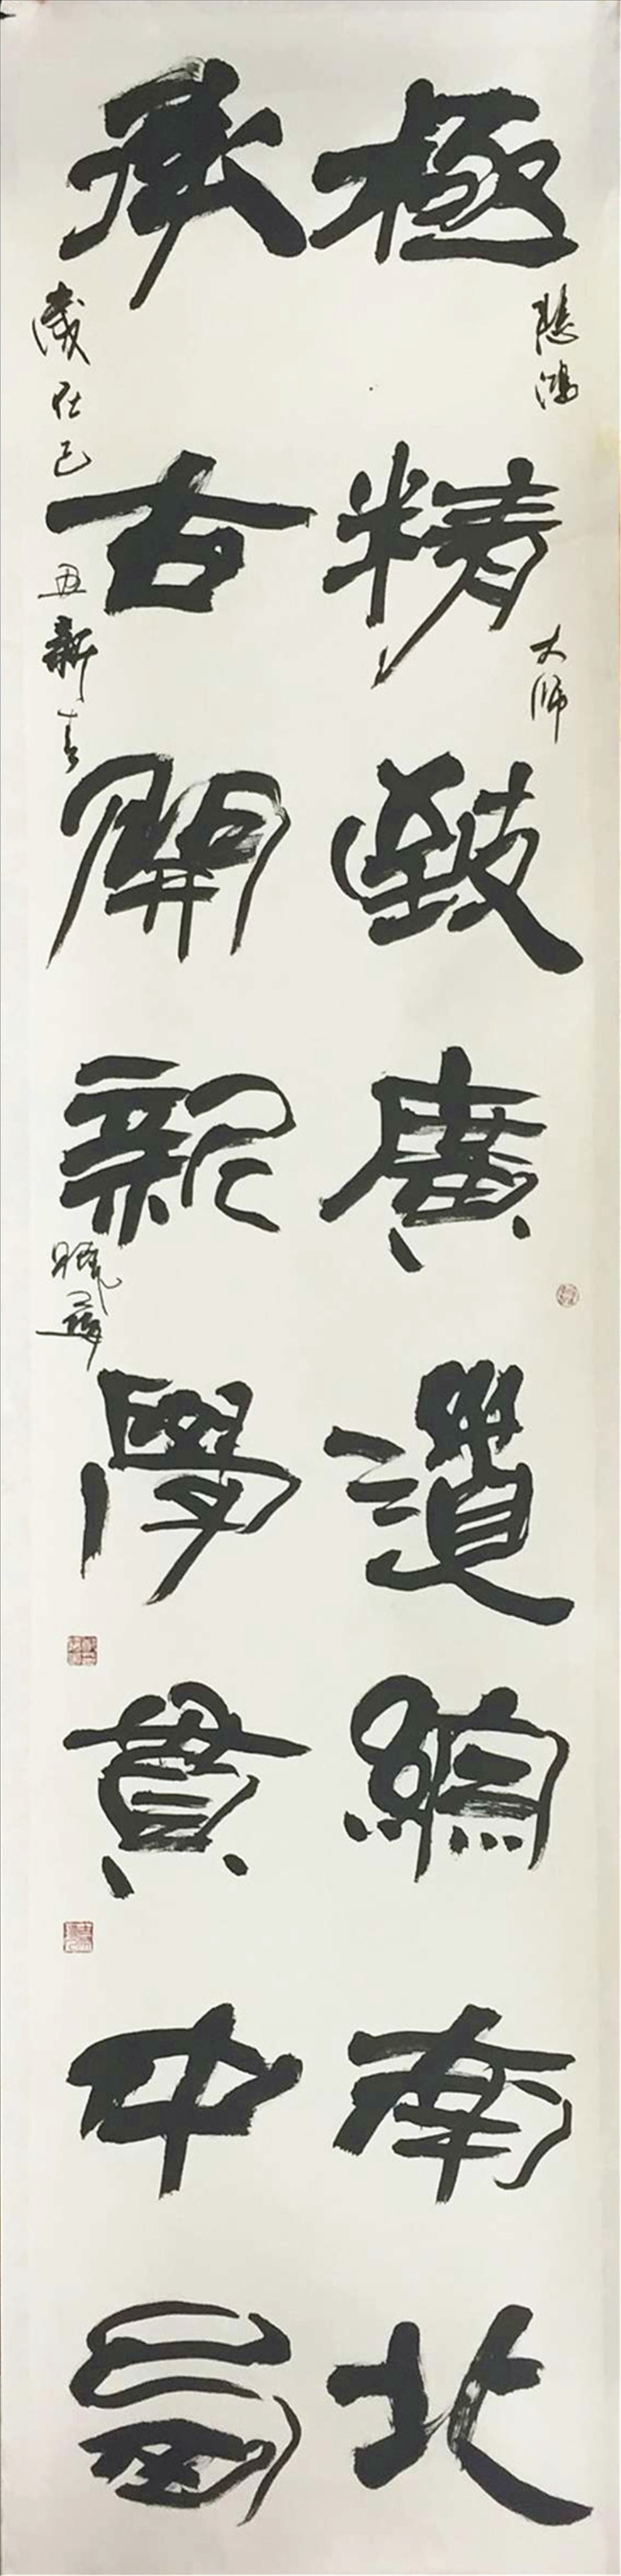 悲鴻大師
極精致廣遺編南北
承古開新學貫中西
歲在己丑新春